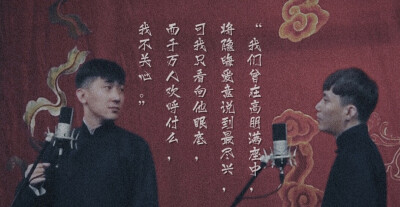 “我们曾在高朋满座中，
将隐晦爱意说到最尽兴，
可我只看向他眼底，
而千万人欢呼什么，
我不关心。”